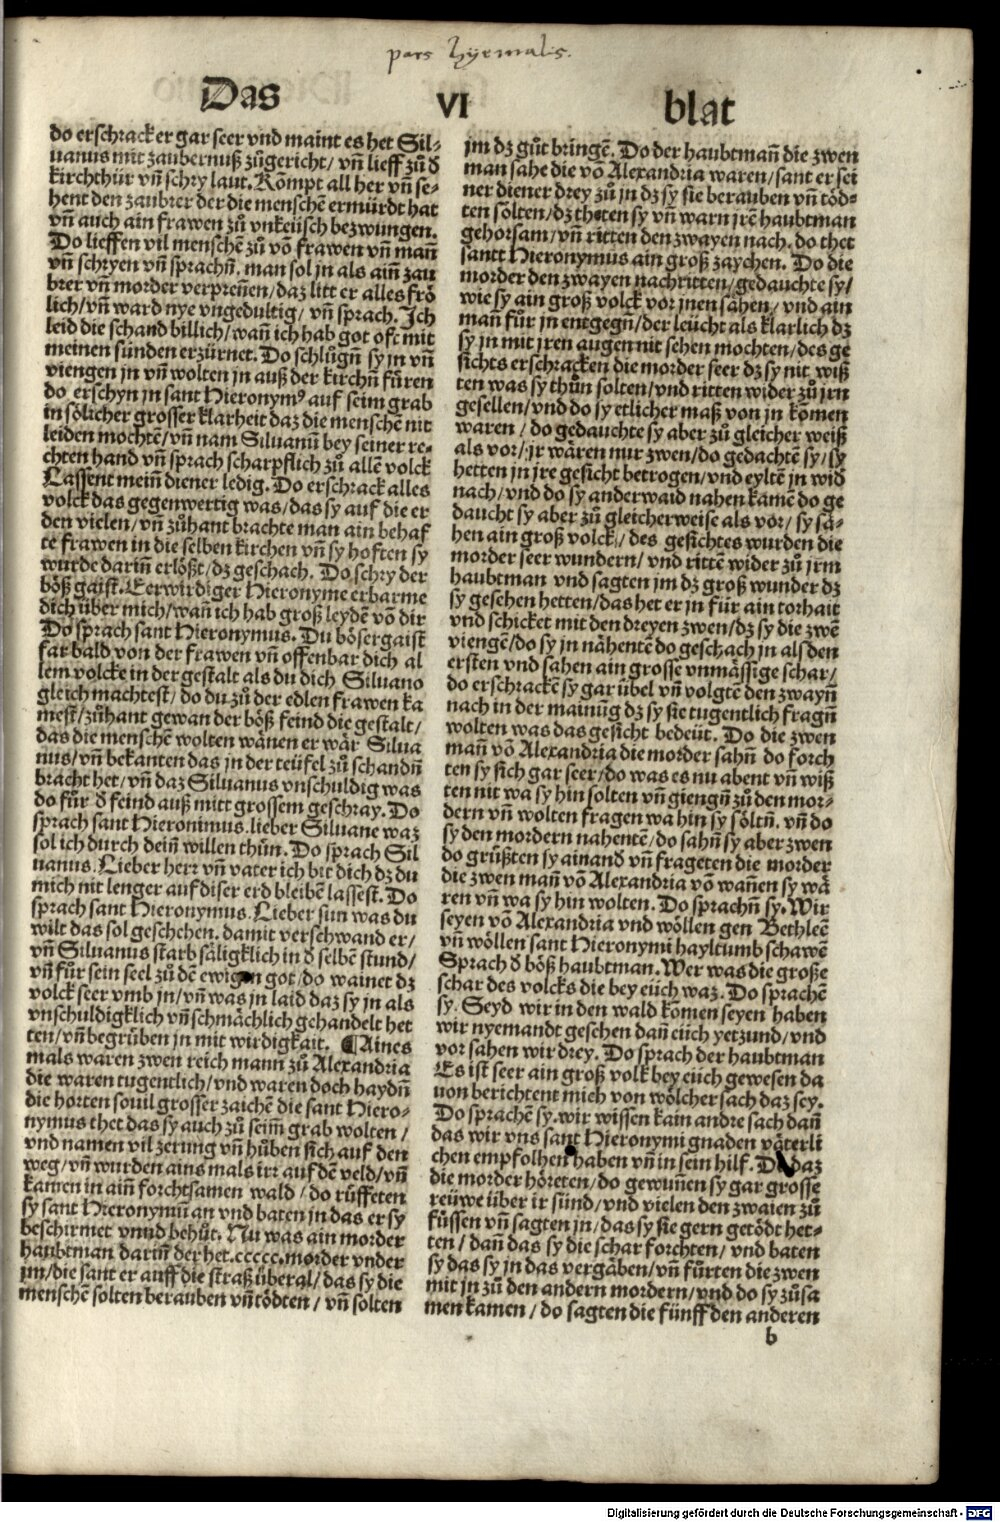 pars hyemalis.
Das VI blat
do erschrack er gar seer vnd maint es het Sil-
uanus mit zaubernuß zůgericht/ vñ lieff zů d
kirchthür vñ schry laut. Kõmpt all her vñ se-
hent den zaubrer der die menschẽ ermürdt hat
vñ auch ain frawen zů vnkeüsch bezwungen.
Do lieffen vil menschẽ zů võ frawen vñ mañ
vñ schryen vñ sprachñ. man sol jn als aiñ zau
brer vñ morder verpreñen/ daz litt er alles frö
lich/ vñ ward nye vngedultig/ vñ sprach. Ich
leid die schand billich/ wañ ich hab got oft mit
meinen sünden erzürnet. Do schlůgñ sy jn vñ
viengen jn vñ wolten jn auß der kirchñ füren
do erschyn jn sant Hieronymꝰ auf seim grab
in sölicher grosser klarheit daz die menschẽ nit
leiden mochtẽ/ vñ nam Siluanũ bey seiner re-
chten hand vñ sprach scharpflich zů allẽ volck
Lassent meiñ diener ledig. Do erschrack alles
volck das gegenwertig was/ das sy auf die er
den vielen/ vñ zůhant brachte man ain behaf
te frawen in die selben kirchen vñ sy hoften sy
wurde dariñ erlößt/ dz geschach. Do schry der
böß gaist. Eerwirdiger Hieronyme erbarme
dich über mich/ wañ ich hab groß leydẽ võ dir
Do sprach sant Hieronymus. Du böser gaist
far bald von der frawen vñ offenbar dich al
lem volcke in der gestalt als du dich Siluano
gleich machtest/ do du zů der edlen frawen ka
mest/ zůhant gewan der böß feind die gestalt/
das die menschẽ wolten wänen er wär Silua
nus/ vñ bekanten das jn der teüfel zů schandñ
bracht het/ vñ daz Siluanus vnschuldig was
do fůr d feind auß mitt grossem geschray. Do
sprach sant Hieronimus. lieber Siluane waz
sol ich durch deiñ willen thůn. Do sprach Sil
uanus. Lieber herr vñ vater ich bit dich dz du
mich nit lenger auf diser erd bleibẽ lassest. Do
sprach sant Hieronymus. Lieber sun was du
wilt das sol geschehen. damit verschwand er/
vñ Siluanus starb säligklich in d selbẽ stund/
vñ für sein seel zů dẽ ewigen got/ do wainet dz
volck seer vmb jn/ vñ was jn laid daz sy jn als
vnschuldigklich vñ schmächlich gehandelt het
ten/ vñ begrüben jn mit wirdigkait. ¶Aines
mals waren zwen reich mann zů Alexandria
die waren tugentlich/ vnd waren doch haydñ
die horten souil grosser zaichẽ die sant Hiero-
nymus thet das sy auch zů seim̃ grab wolten/
vnd namen vil zerung vñ hůben sich auf den
weg/ vñ wurden ains mals irr auf dẽ veld/ vñ
kamen in aiñ forchtsamen wald/ do růffeten
sy sant Hieronymũ an vnd baten jn das er sy
beschirmet vnnd behůt. Nu was ain morder
haubtman dariñ der het.ccccc.morder vnder
jm/ die sant er auff die straß überal/ das sy die
menschẽ solten berauben vñ tödten/ vñ solten
jm dz gůt bringẽ. Do der haubtmañ die zwen
man sahe die võ Alexandria waren/ sant er sei
ner diener drey zů jn dz sy sie berauben vñ töd-
ten sölten/ dz theten sy vñ warn jrẽ haubtman
gehorsam/ vñ ritten den zwayen nach. do thet
santt Hieronymus ain groß zaychen. Do die
morder den zwayen nachritten/ gedauchte sy/
wie sy ain groß volck vor jnen sahen/ vnd ain
mañ fůr jn entgegñ/ der leücht als klarlich dz
sy jn mit jren augen nit sehen mochten/ des ge
sichts erschracken die morder seer dz sy nit wiß
ten was sy thůn solten/ vnd ritten wider zů jrn
gesellen/ vnd do sy etlicher maß von jn kõmen
waren/ do gedauchte sy aber zů gleicher weiß
als vor/ jr wären nur zwen/ do gedachtẽ sy/ sy
hetten jn jre gesicht betrogen/ vnd eyltẽ jn wid
nach/ vnd do sy anderwaid nahen kamẽ do ge
daucht sy aber zů gleicherweise als vor/ sy sä-
hen ain groß volck/ des gesichtes wurden die
morder seer wundern/ vnd rittẽ wider zů jrm
haubtman vnd sagten jm dz groß wunder dz
sy gesehen hetten/ das het er jn für ain torhait
vnd schicket mit den dreyen zwen/ dz sy die zwẽ
viengẽ/ do sy jn nähentẽ do geschach jn als den
ersten vnd sahen ain grosse vnmässige schar/
do erschrackẽ sy gar übel vñ volgtẽ den zwayñ
nach in der mainũg dz sy sie tugentlich fragñ
wolten was das gesicht bedeüt. Do die zwen
mañ võ Alexandria die morder sahñ do forch
ten sy sich gar seer/ do was es nu abent vñ wiß
ten nit wa sy hin solten vñ giengñ zů den mor-
dern vñ wolten fragen wa hin sy söltñ. vñ do
sy den mordern nahentẽ/ do sahñ sy aber zwen
do grüßten sy ainand vñ frageten die morder
die zwen mañ võ Alexandria võ wañen sy wä
ren vñ wa sy hin wolten. Do sprachñ sy. Wir
seyen võ Alexandria vnd wöllen gen Bethleẽ
vñ wöllen sant Hieronymi hayltumb schawẽ
Sprach d böß haubtman. Wer was die große
schar des volcks die bey eüch waz. Do sprachẽ
sy. Seyd wir in den wald kõmen seyen haben
wir nyemandt gesehen dañ eüch yetzund/ vnd
vor sahen wir drey. Do sprach der haubtman
Es ist seer ain groß volk bey eüch gewesen da
uon berichtent mich von wölcher sach daz sey.
Do sprachẽ sy. wir wissen kain andre sach dañ
das wir vns sant Hieronymi gnaden väterli
chen empfolhen haben vñ in sein hilf. Do daz
die morder höreten/ do gewuñen sy gar grosse
reüwe über ir sünd/ vnd vielen den zwaien zů
füssen vñ sagten jn/ das sy sie gern getödt het-
ten/ dañ das sy die schar forchten/ vnd baten
sy das sy jn das vergäben/ vñ fürten die zwen
mit jn zů den andern mordern/ vnd do sy zůsa
men kamen/ do sagten die fünff den anderen
b
Digitalisierung gefördert durch die Deutsche Forschungsgemeinschaft - DFG